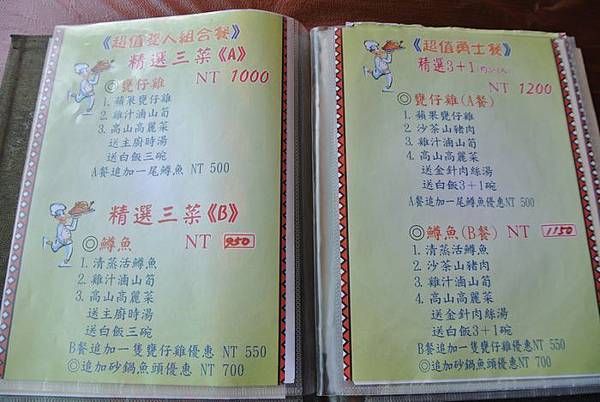 《超值雙人組合餐》
精選三菜《A》
NT 1000
◎甕仔雞
1. 蘋果甕仔雞
2. 雞汁滷山筍
3. 高山高麗菜
送主廚時湯
送白飯三碗
A餐追加一尾鱒魚 NT 500
精選三菜《B》
◎鱒魚 NT 950
1. 清蒸活鱒魚
2. 雞汁滷山筍
3. 高山高麗菜
送主廚時湯
送白飯三碗
B餐追加一隻甕仔雞優惠 NT 550
◎追加砂鍋魚頭優惠 NT 700
《超值勇士餐》
精選3+1
NT 1200
◎甕仔雞(A餐)
1. 蘋果甕仔雞
2. 沙茶山豬肉
3. 雞汁滷山筍
4. 高山高麗菜
送金針肉絲湯
送白飯3+1碗
A餐追加一尾鱒魚優惠NT 500
◎鱒魚(B餐) NT 1150
1. 清蒸活鱒魚
2. 沙茶山豬肉
3. 雞汁滷山筍
4. 高山高麗菜
送金針肉絲湯
送白飯3+1碗
B餐追加一隻甕仔雞優惠NT 550
◎追加砂鍋魚頭優惠NT 700